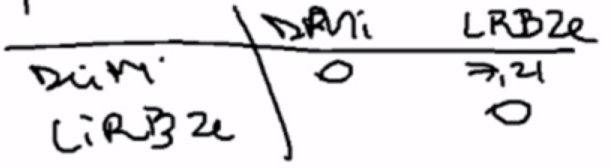 DRMi LRBZe
DiiMi 0 7,21
LiRBZe 0